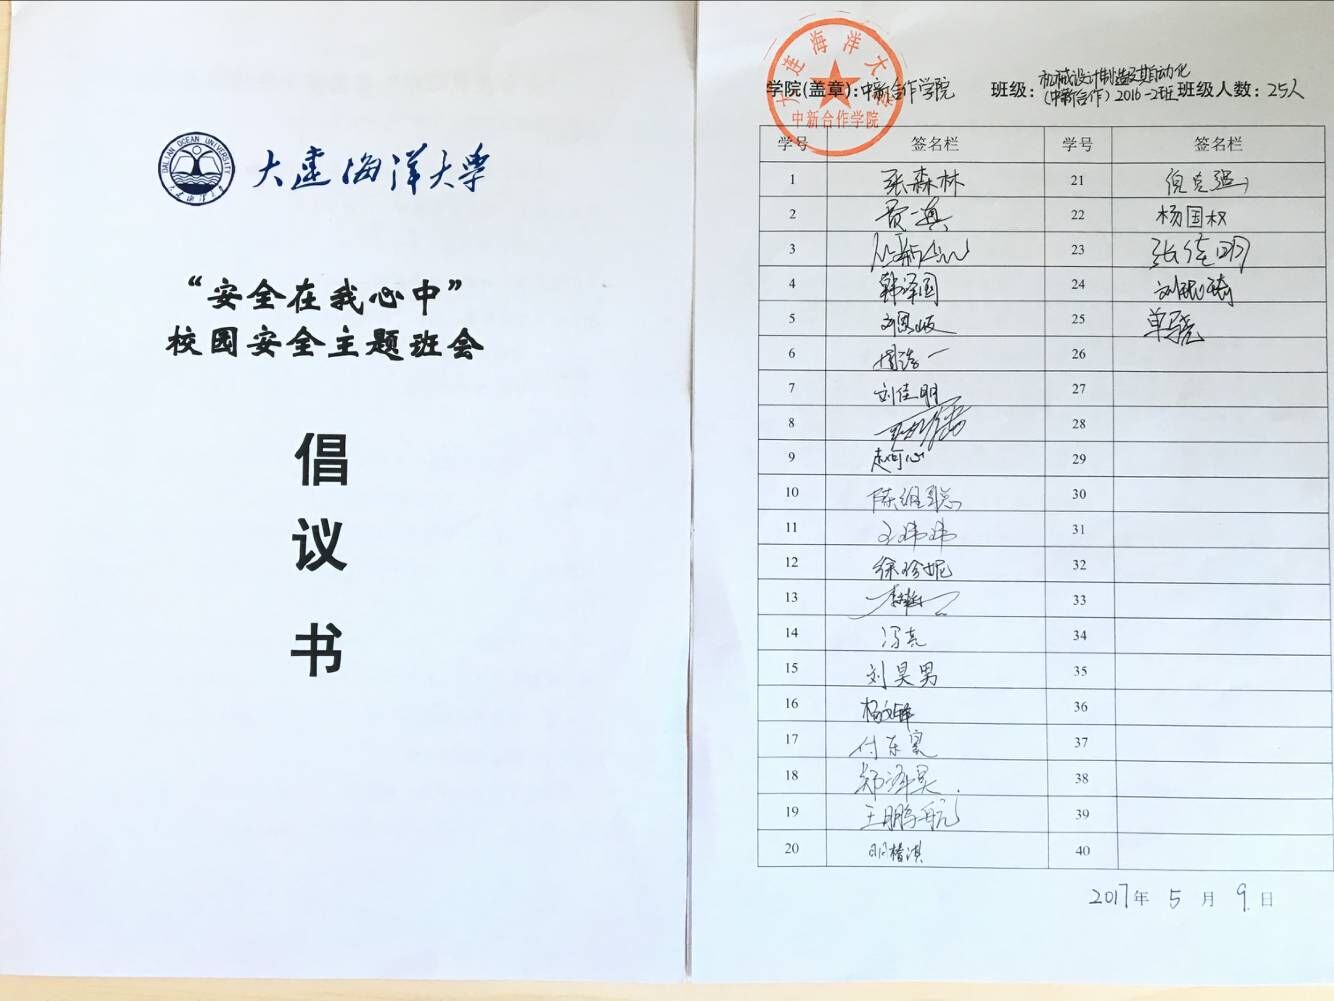 DALIAN OCEAN UNIVERSITY
大连海洋大学
大连海洋大学
“安全在我心中”
校园安全主题班会
倡
议
书
大连海洋大学
中新合作学院
学院(盖章): 中新合作学院 班级: 机械设计制造及其自动化
(中新合作) 2016-2班 班级人数: 25人
学号 签名栏 学号 签名栏
1 张森林 21 倪克强
2 贾一典 22 杨国权
3 23 张德明
4 韩泽国 24
5 刘恩岐 25 单骁
6 浩一 26
7 刘佳明 27
8 28
9 赵可心 29
10 陈维聪 30
11 王玮玮 31
12 徐珍妮 32
13 33
14 冯亮 34
15 刘昊男 35
16 杨文锋 36
17 付东 37
18 郑泽昊 38
19 王鹏航 39
20 明楷淇 40
2017年 5 月 9 日